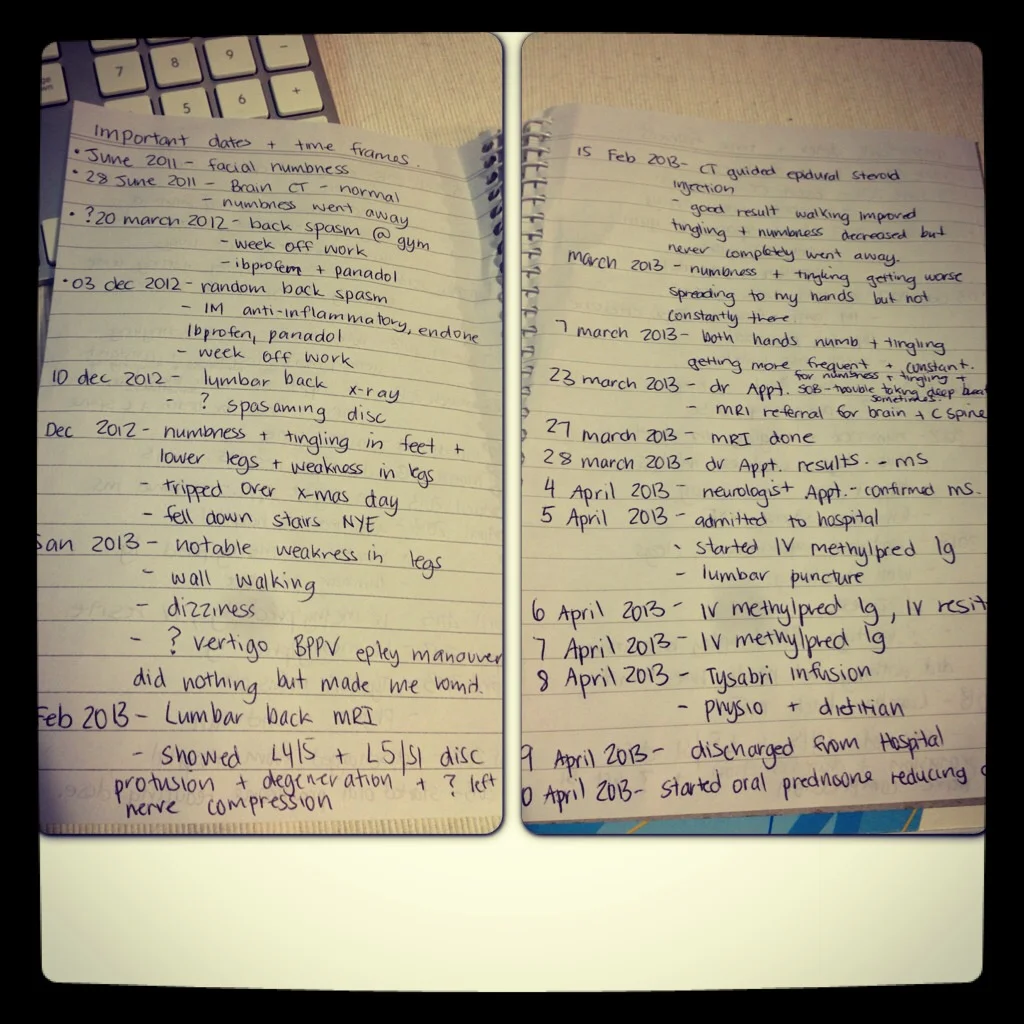 7
8
9
-
5
6
+
Important dates + time frames.
• June 2011 - facial numbness
• 28 June 2011 - Brain CT - normal
- numbness went away
• ?20 march 2012 - back spasm @ gym
- week off work
- ibprofem + panadol
• 03 dec 2012 - random back spasm
- IM anti-inflammatory, endone
Ibprofen, panadol
- week off work
10 dec 2012 - lumbar back x-ray
- ? spasaming disc
Dec 2012 - numbness + tingling in feet +
lower legs + weakness in legs
- tripped over x-mas day
- fell down stairs NYE
Jan 2013 - notable weakness in legs
- wall walking
- dizziness
- ? vertigo BPPV epley manouver
did nothing but made me vomit.
Feb 2013 - Lumbar back MRI
- showed L4/5 + L5/S1 disc
protusion + degeneration + ? left
nerve compression
15 Feb 2013 - CT guided epidural steroid
injection
- good result walking improved
tingling + numbness decreased but
never completely went away.
march 2013 - numbness + tingling getting worse
spreading to my hands but not
constantly there
7 march 2013 - both hands numb + tingling
getting more frequent + constant.
23 march 2013 - dr Appt. for numbness + tingling +
SOB - trouble taking deep
sometimes.
- MRI referral for brain + C spine
27 march 2013 - MRI done
28 march 2013 - dr Appt. results. - MS
4 April 2013 - neurologist Appt. - confirmed MS.
5 April 2013 - admitted to hospital
- started IV methylpred 1g
- lumbar puncture
6 April 2013 - IV methylpred 1g, IV resit
7 April 2013 - IV methylpred 1g
8 April 2013 - Tysabri infusion
- physio + dietitian
9 April 2013 - discharged from Hospital
0 April 2013 - started oral prednisone reducing